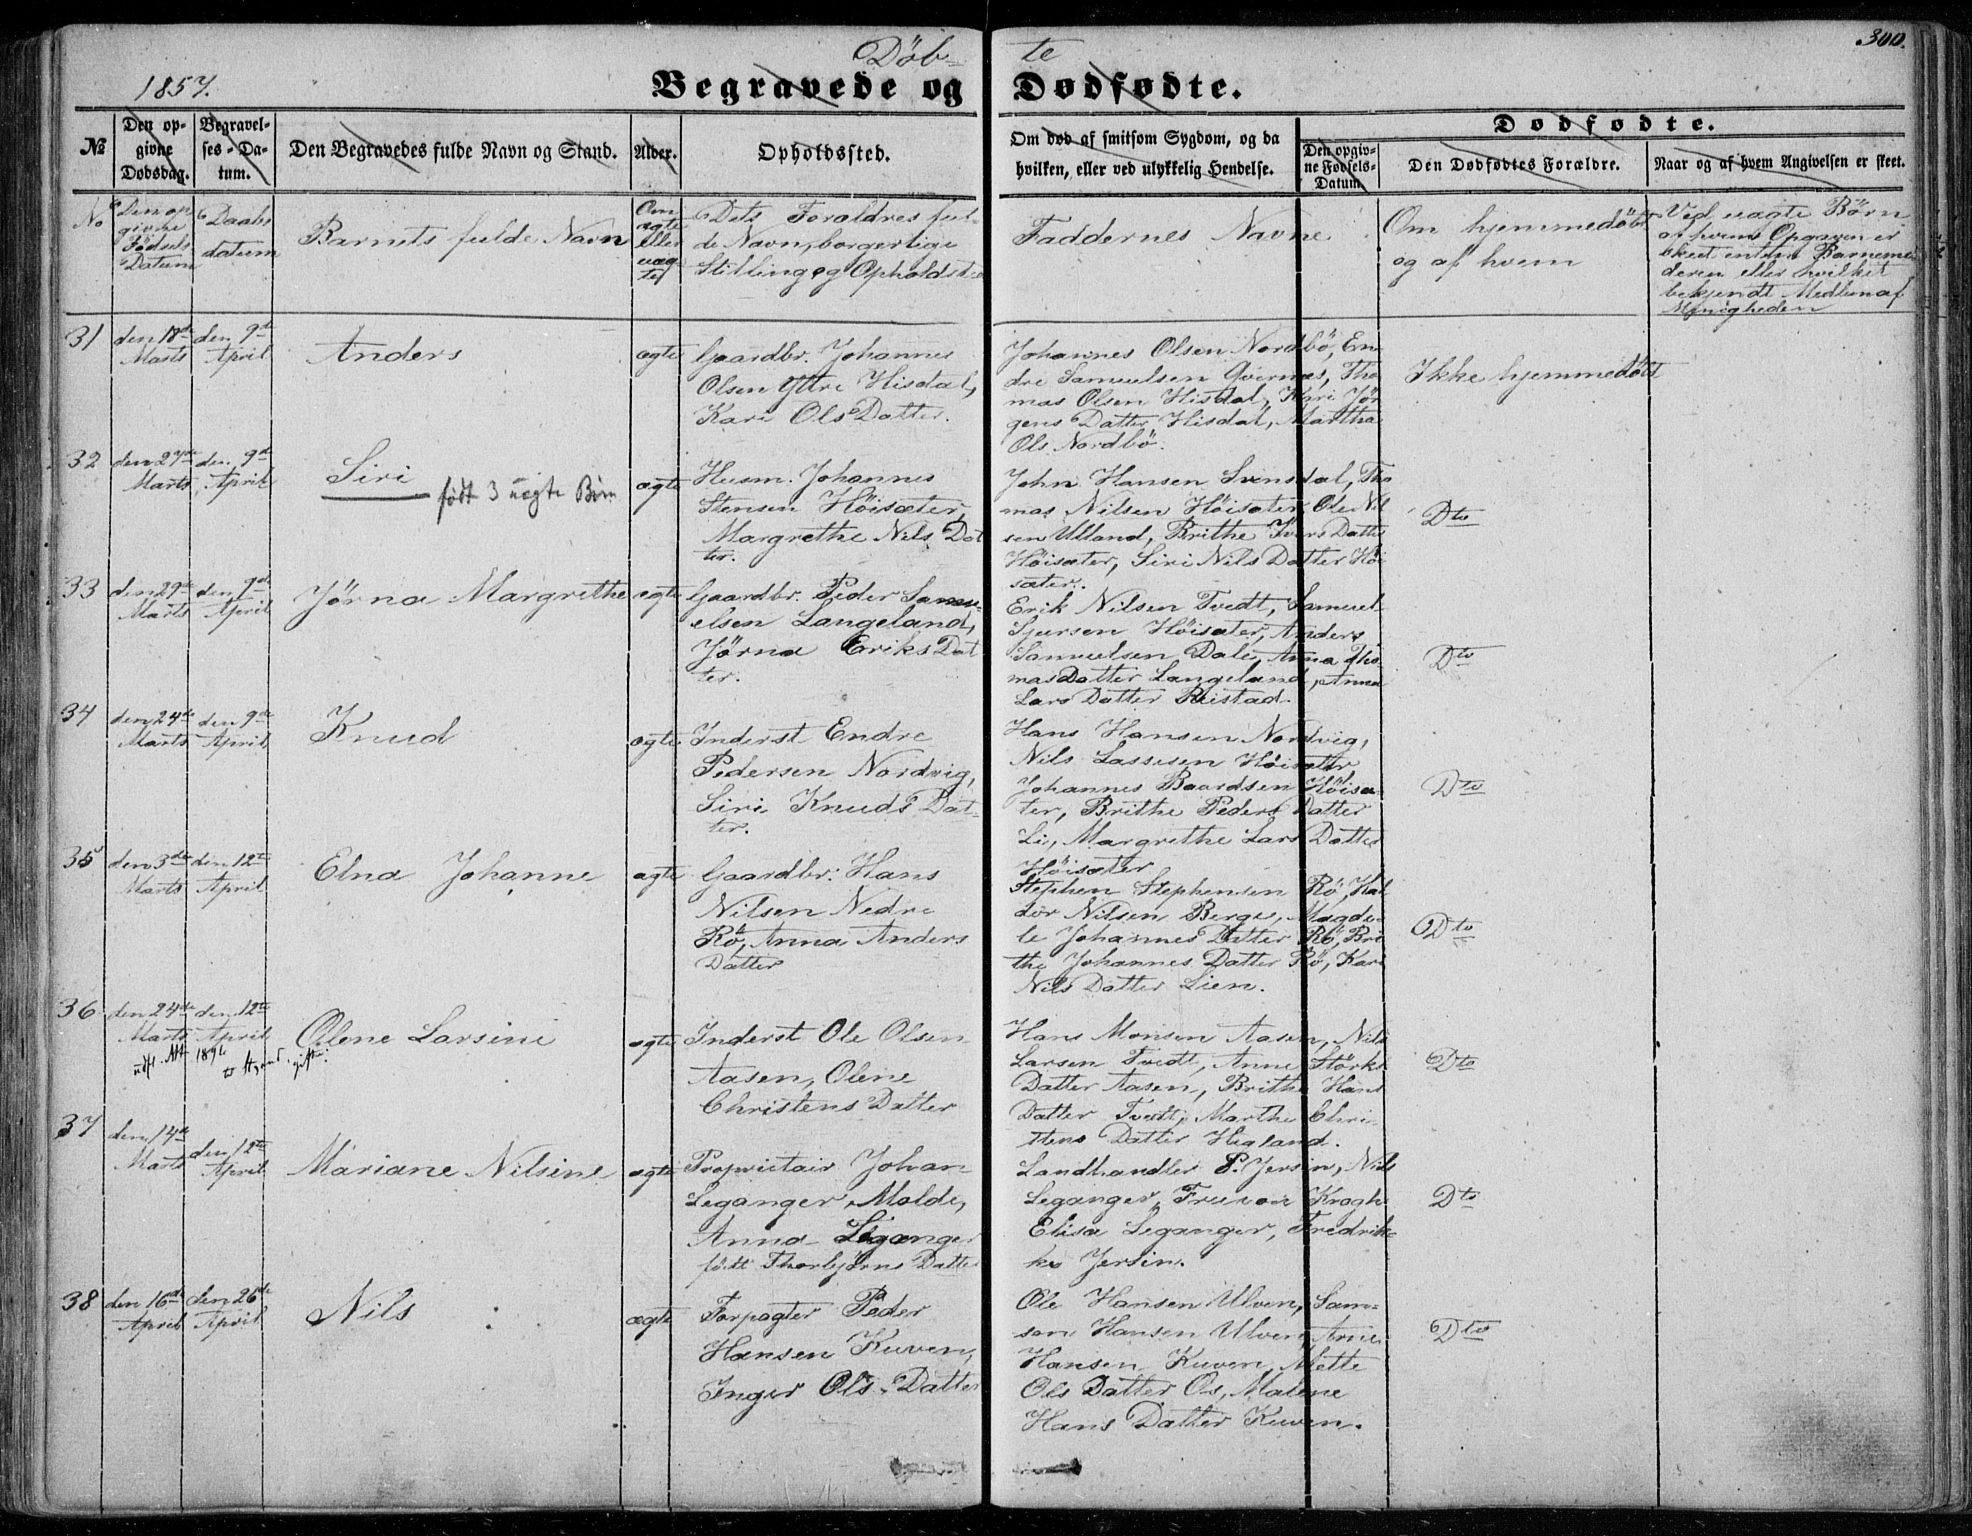 1857.
Döb-
te
300.
Begravede og Dødfødte.
№
Den opgivne Dødsdag.
Begravelses-Datum.
Den Begravedes fulde Navn og Stand.
Alder.
Opholdssted.
Om død af smitsom Sygdom, og da hvilken, eller ved ulykkelig Hendelse.
Dødfødte.
Den opgivne Fødsels-Datum
Den Dødfødtes Forældre.
Naar og af hvem Angivelsen er skeet.
No
Den op
givne
Fødsels
Datum
Daabs
datum
Barnets fulde Navn
Om
ægte
eller
uæg-
te
Dets Foraldres ful-
de Navn, borgerlige
Stilling og Opholdsted
Faddernes Navne
Om hjemmedöbt
og af hvem
Ved uægte Børn
af hvem Opgaven er
skeet enten Barnemo-
deren eller hvilket
bekjendt Medlem af
Menigheden
31
den 18de
Marts
den 9de
April
Anders
ægte
Gaardbr. Johannes
Olsen Yttre Hisdal,
Kari Ols Datter.
Johannes Olsen Nordbö, En-
dre Samuelsen Gvernes, Tho
mas Olsen Hisdal, Kari Jör
gens Datter Hisdal, Martha
Ols Nordbö.
Ikke hjemmedöbt
32
den 27de
Marts
den 9de
April
Siri
født 3 uægte Börn
ægte
Husm. Johannes
Stensen Höisæter,
Margrethe Nils Dat
ter.
John Hansen Svinsdal, Tho
mas Nilsen Höisæter, Ole Nil
sen Ulland, Brithe Ivers Datter
Höisæter, Siri Nils Datter Höi
sæter.
Dto
33
den 29de
Marts
den 9de
April
Jörna Margrethe
ægte
Gaardbr. Peder Samu-
elsen Langeland,
Jörna Eriks Dat
ter.
Erik Nilsen Tvedt, Samuel
Sjursen Höisæter, Anders
Samuelsen Dale, Anna Tho
mas Datter Langeland, Anna
Lars Datter Reistad.
Dto
34
den 24de
Marts
den 9de
April
Knud
ægte
Inderst Endre
Pedersen Nordvig,
Siri Knuds Dat-
ter.
Hans Hansen Nordvig,
Nils Lassesen Höisæter
Johannes Baardsen Höisæ
ter, Brithe Peders Datter
Li, Margrethe Lars Datter
Höisæter
Dto
35
den 3de
Marts
den 12te
April
Elna Johanne
ægte
Gaardbr. Hans
Nilsen Nedre
Rö, Anna Anders
Datter
Stephen Stephensen Rö, Hal
dor Nilsen Berge, Magde-
le Johannes Datter Rö, Bri
the Johannes Datter Rö, Kari
Nils Datter Lien.
Dto
36
den 24de
Marts
den 12te
April
udst. Att. 1896
Olene Larsine
ægte
Inderst Ole Olsen
Aasen, Olene
Christens Datter
Hans Monsen Aasen, Nils
Larsen Tvedt, Anne Störks
Datter Aasen, Brithe Hans
Datter Tvedt, Marthe Chri-
stens Datter Hegland.
Dto
37
den 14de
Marts
den 12te
April
Mariane Nilsine
ægte
Proprietair Johan
Leganger, Molde,
Anna Leganger
födt Thorbjörns Datter
Landhandler P. Jersin, Nils
Leganger, Krogh
Elisa Leganger, Fredrik-
ke Jersin.
Dto
38
den 16de
April
den 26de
April
Nils
ægte
Forpagter Peder
Hansen Kuven,
Inger Ols Datter
Ole Hansen Ulven, Sam-
son Hansen Ulven, Arne
Hansen Kuven, Mette
Ols Datter Os, Malene
Hans Datter Kuven.
Dto